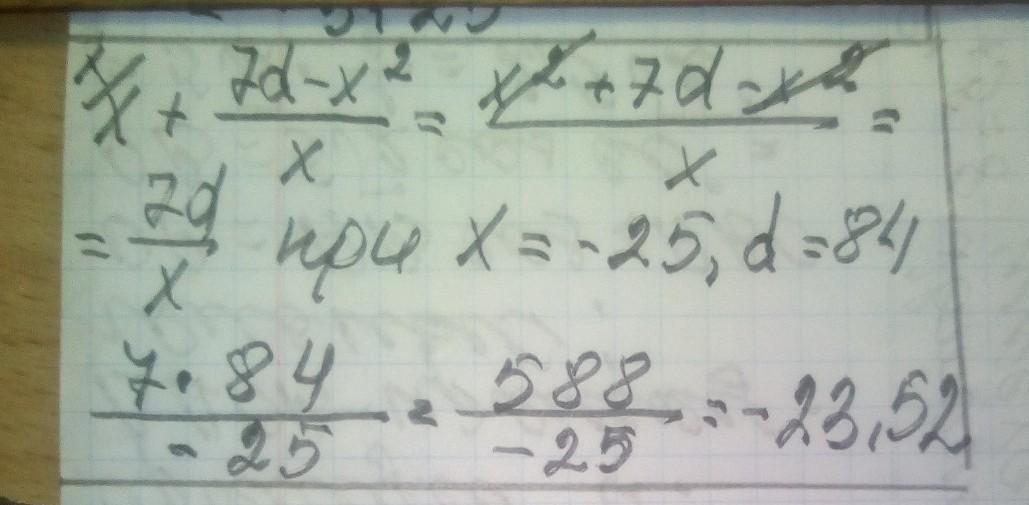 x/ x + (7d - x²)/x = (x² + 7d - x²)/x =
= 7d/x при x = -25, d = 84
(7 · 84)/(-25) = 588/(-25) = -23,52